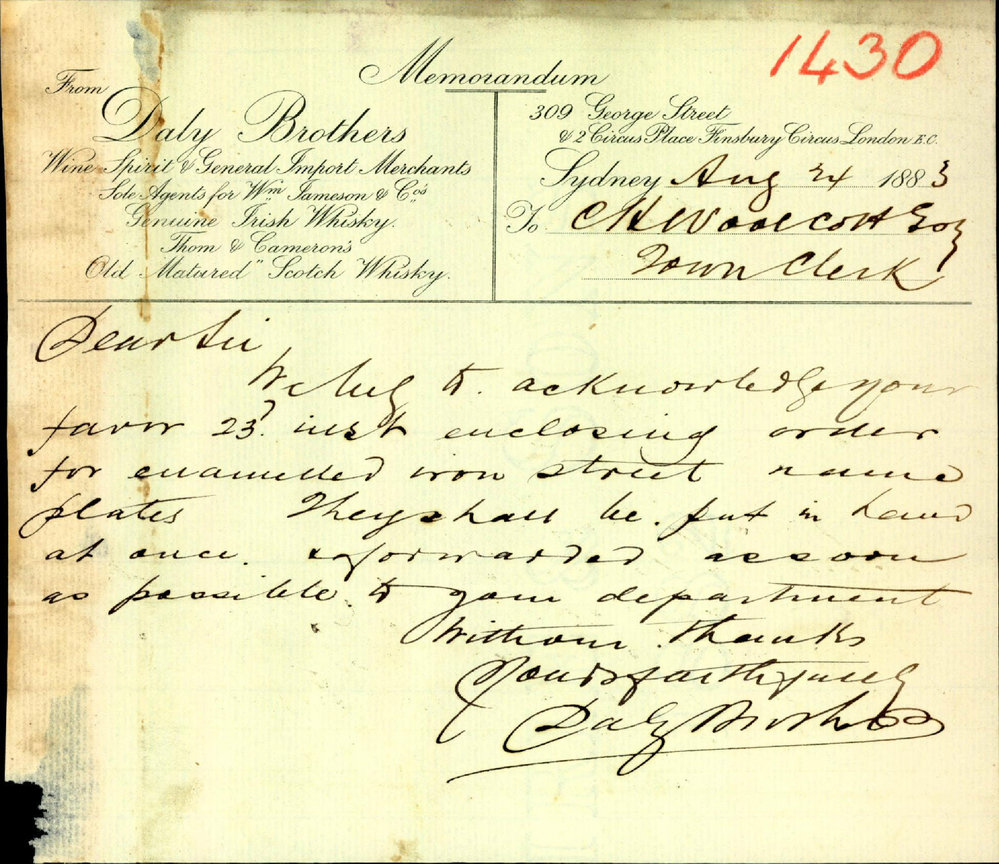 1430
Memorandum
From
Daly Brothers
Wine Spirit & General Import Merchants
Sole Agents for Wm. Jameson & Co's
Genuine Irish Whisky.
Thom & Cameron's
"Old Matured" Scotch Whisky.
309 George Street
& 2 Circus Place Finsbury Circus London E.C.
Sydney Aug 24 1883
To CH Woolcott Esq
Town Clerk
Dear Sir
We beg to acknowledge your
favor 23d. inst enclosing order
for enamelled iron street name
plates They shall be put in hand
at once. & forwarded as soon
as possible to your department
With our thanks
Yours faithfully
Daly Brothers